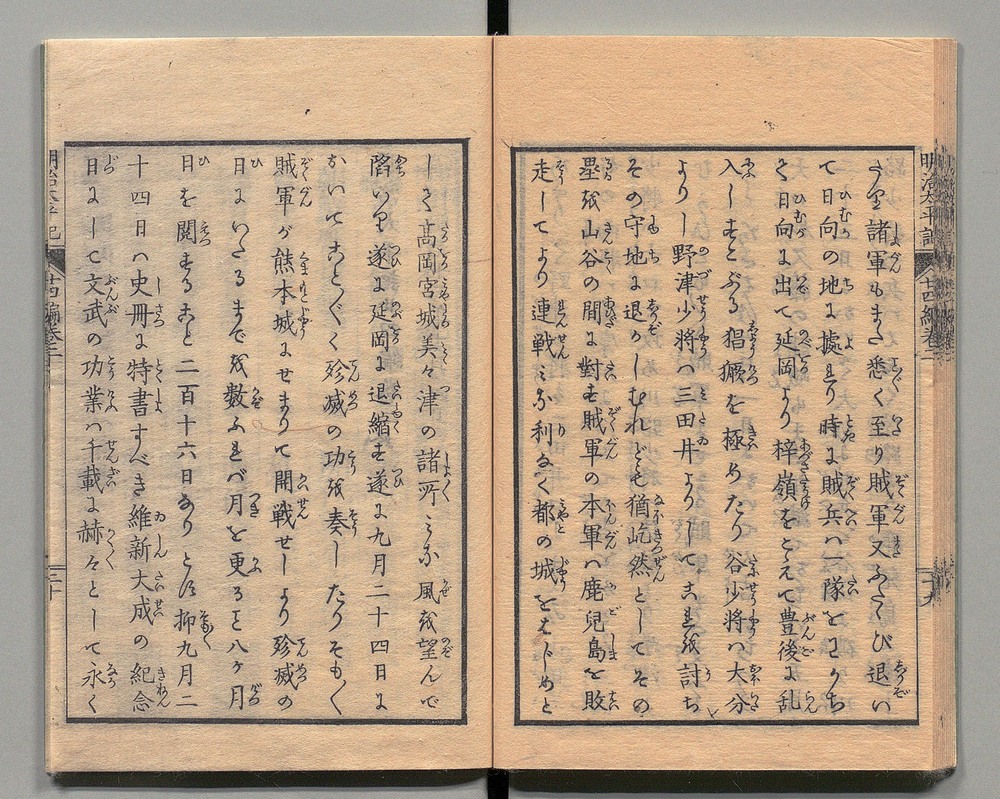 たり諸軍もまた悉く至り賊軍又ふたゝび退い
て日向の地に據れり時に賊兵ハ一隊をわかち
て日向に出て延岡より梓嶺をこえて豊後に乱
入しすこぶる猖獗を極めたり谷少将ハ大分
より野津少将ハ三田井よりして之を討ち
その守地に退かしむれども猶屹然としてその
塁を山谷の間に對す賊軍の本軍ハ鹿児島を敗
走してより連戦ミな利なく都の城をはじめと
明治太平記 廿四編巻二 十九
して高岡宮城美々津の諸所ミな風を望んで
陥いり遂に延岡に退縮す遂に九月二十四日に
おいてこと〴〵く殄滅の功を奏したりそも〳〵
賊軍が熊本城にせまりて開戦せしより殄滅の
日にいたるまでを数ふれバ月を更ると八ヶ月
日を閲すること二百十六日なりとす抑九月二
十四日ハ史冊に特書すべき維新大成の紀念
日にして文武の功業ハ千載に赫々として永く
明治太平記 廿四編巻二 二十